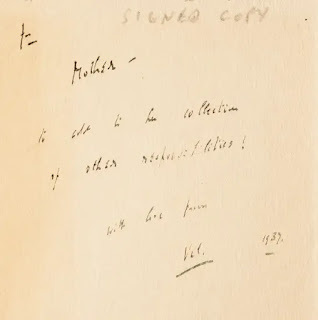 SIGNED COPY
to
Mother –
to add to her collection
of other responsibilities!
with love from
Vel. 1937.